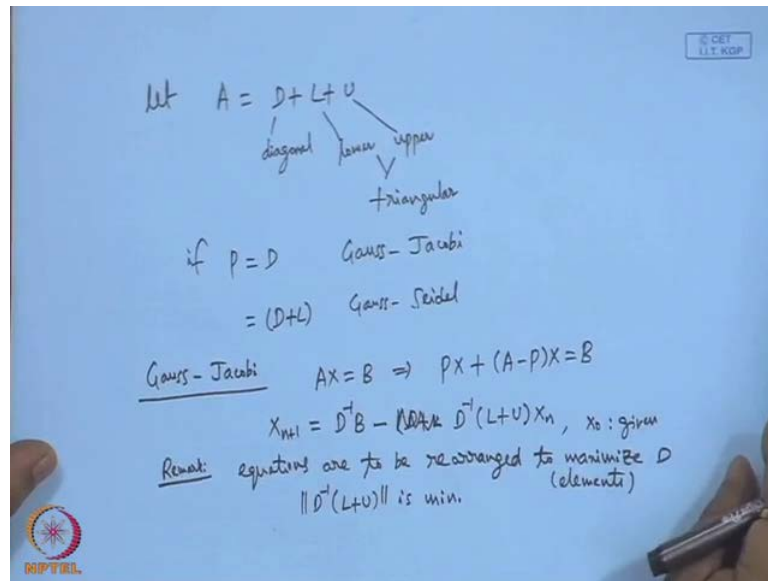 © CET
I.I.T. KGP
let A = D + L + U
diagonal lower upper
triangular
if P = D Gauss-Jacobi
= (D+L) Gauss-Seidel
Gauss-Jacobi AX = B ⇒ PX + (A-P)X = B
Xₙ₊₁ = D⁻¹B - D⁻¹(L+U)Xₙ, X₀ : given
Remark: equations are to be rearranged to maximize D
(elements)
||D⁻¹(L+U)|| is min.
NPTEL